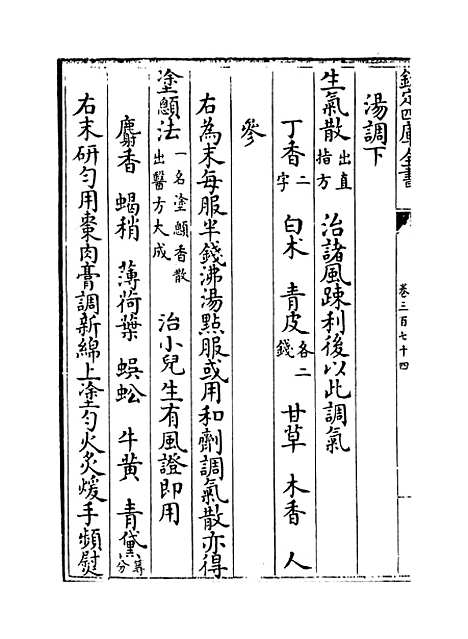 欽定四庫全書
卷三百七十四
湯調下
生氣散出直指方 治諸風疎利後以此調氣
丁香二字 白术 青皮各二錢 甘草 木香 人
參
右為末每服半錢沸湯點服或用和劑調氣散亦得
塗顖法一名塗顖香散出醫方大成 治小兒生有風證即用
麝香 蝎稍 薄荷葉 蜈蚣 牛黄 青黛等分
右末研匀用棗肉膏調新綿上塗匀火炙煖手頻熨